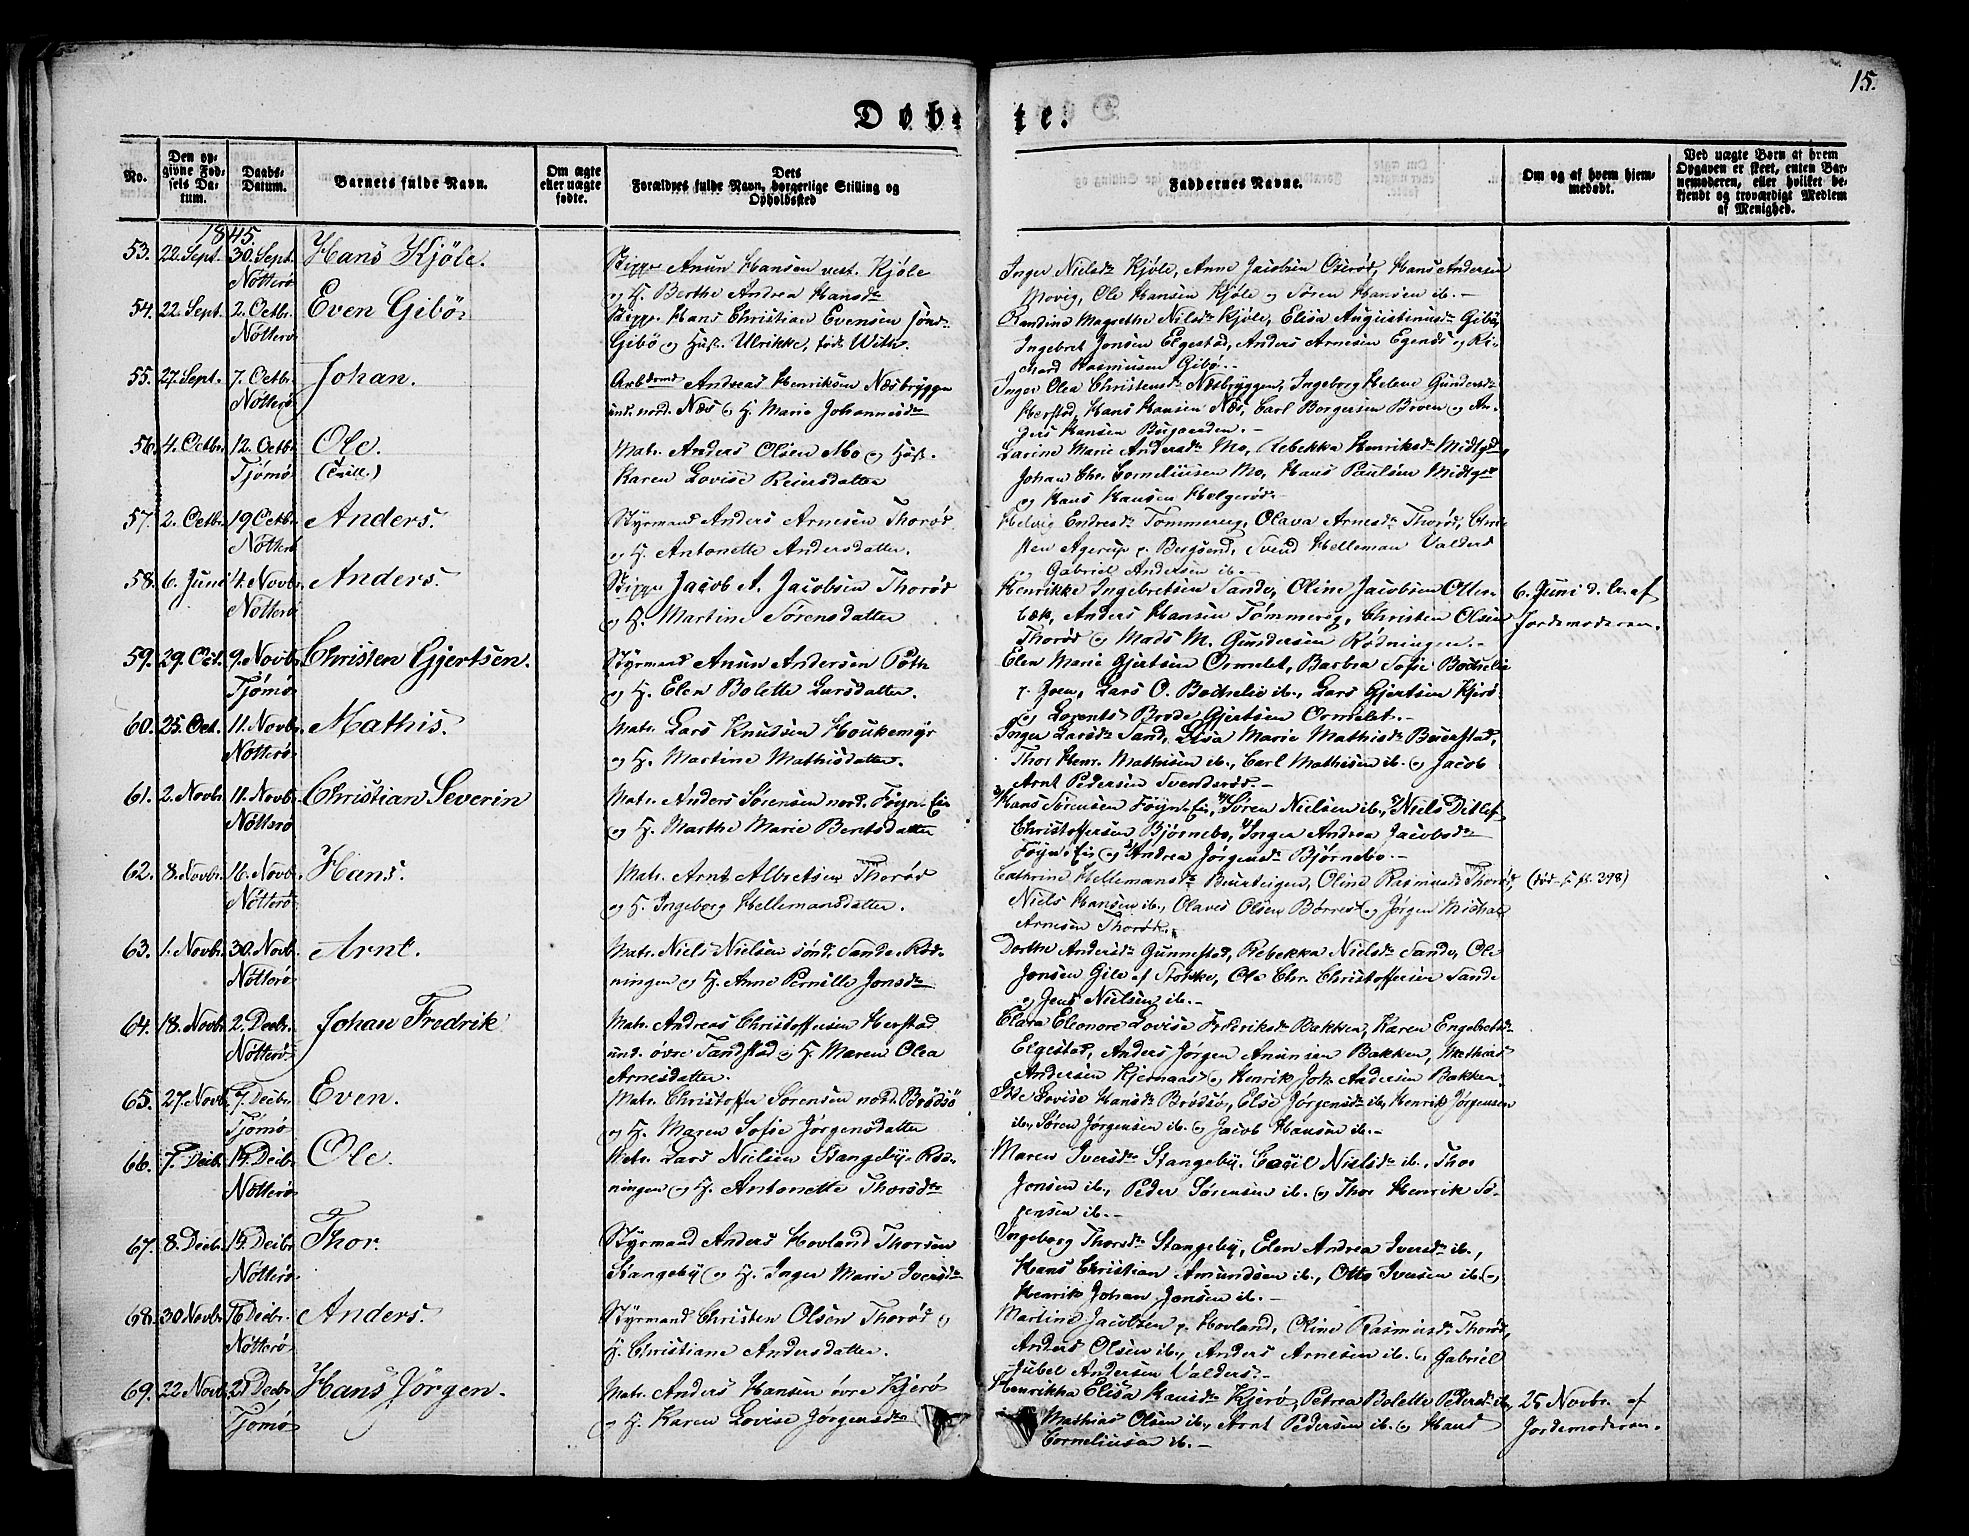 15.
Døb- te.
No.
Den op-
givne Fød-
sels Da-
tum.
Daabs-
Datum.
Barnets fulde Navn.
Om ægte
eller uægte
fødte.
Dets
Forældres fulde Navn, borgerlige Stilling og
Opholdssted
Faddernes Navne.
Om og af hvem hjem-
medøbt.
Ved uægte Børn af hvem
Opgaven er skeet, enten Bar-
nemoderen, eller hvilket be-
kjendt og troværdigt Medlem
af Menighed.
1845
53. 22. Sept. 30. Sept. Hans Kjøle. Skipp. Anun Hansen vest. Kjøle
Nøtterø og H. Berthe Andrea Hansdr
Inger Nielsdr Kjøle, Anne Jacobsen Oserød, Hans Andersen
Movig, Ole Hansen Kjøle og Søren Hansen ib.-
54. 22. Sept. 2. Octbr. Even Gibø. Skipp. Hans Christian Evensen sønd.
Nøtterø Gibø og Hust. Ulrikke, født With.
Randine Magrethe Nilsdr Kjøle, Elisa Augustinusdr Gibø,
Ingebret Jonsen Elgestad, Anders Arnesen Egenes og Ri-
chard Rasmusen Gibø.-
55. 27. Sept. 7. Octbr. Johan. Arbdsmd Andreas Henriksen Næsbryggen
Nøtterø und. nord. Næs og H. Marie Johannesdr
Inger Olea Christensdr Næsbryggen, Ingeborg Helene Gundersdr
Herstad, Hans Hansen Næs, Carl Borgersen Broen og An-
ders Hansen Bugaarden.-
56. 4. Octbr. 12. Octbr. Ole. Matr. Anders Olsen Mo og Hust.
Tjømø (Tvill.) Karen Lovise Reiersdatter
Larine Marie Andersdr Mo, Rebekka Henriksdr Midtgd
Johan Chr. Corneliusen Mo, Hans Paulsen Midtgd
og Hans Hansen Holgerød.
57. 2. Octbr. 19 Octbr. Anders. Styrmand Anders Arnesen Thorød
Nøtterø og H. Antonette Andersdatter.
Helvig Endresdr Tømmereg, Olava Arnesdr Thorød, Chri-
sten Agerup p. Bergsend, Svend Helleman Valders
og Gabriel Andersen ib.-
58. 6. Juni 4. Novb. Anders. Skipp. Jacob A. Jacobsen Thorød
Nøtterø og H. Martine Sørensdatter
Henrikke Ingebretsen Sande, Oline Jacobsen Olle-
bæk, Anders Hansen Tømmereg, Christen Olsen
Thorød og Mads M. Gundersen Rødningen.-
6. Juni d. A. af
Jordemoderen.
59. 29. Oct. 9. Novb. Christen Gjertsen. Styrmand Anun Andersen Poth
Tjømø og H. Elen Bolette Larsdatter.
Elen Marie Gjertsen Ormelet, Barbra Sofie Bodnelie
p. Goen, Lars O. Bodnelie ib., Lars Gjertsen Kjerø
og Lorents Brode Gjertsen Ormelet.-
60. 25. Oct. 11. Novb. Mathis. Matr. Lars Knudsen Houkemyr
Nøtterø og H. Martine Mathisdatter.
Inger Larsdr Sand, Elisa Marie Mathisdr Beierstad,
Thor Henr. Mathisen ib., Carl Mathisen ib. og Jacob
Arnt Pedersen Svenderød.-
61. 2. Novbr. 11. Novb. Christian Severin Matr. Anders Sørensen nord. Føyn-Eie
Nøtterø og H. Marthe Marie Berntsdatter
Hans Sørensen Føyn-Eie, Søren Nielsen ib., Niels Ditlef
Christoffersen Bjørnebo, Inger Andrea Jacobsdr
Føyn-Eie og Andrea Jørgensdr Bjørnebo.-
62. 8. Novbr. 16. Novb. Hans. Matr. Arnt Albretsen Thorød
Nøtterø og H. Ingeborg Hellemansdatter.
Cathrine Hellemansdr Buerteigen, Oline Rasmusdr Thorød,
Niels Hansen ib., Olaves Olsen Børrest og Jørgen Michal
Arnesen Thorød.
(død s. p. 398)
63. 1. Novbr. 30. Novb. Arnt. Matr. Niels Nielsen sønd. Sande-Rød-
Nøtterø ningen og H. Anne Pernille Jonsdr
Dorthe Andersdr Gunnestad, Rebekka Nielsdr Sande, Ole
Jonsen Gile af Stokke, Ole Chr. Christoffersen Sande
og Jens Nielsen ib.-
64. 18. Novbr. 2. Decbr. Johan Fredrik Matr. Andreas Christoffersen Herstad
Nøtterø und. øvre Tandstad og H. Maren Olea
Arnesdatter.
Clara Eleonore Lovise Fredriksdr Bakken, Karen Engebretsdr
Elgestad, Anders Jørgen Anunsen Bakken, Mathias
Andersen Kjernaas og Henrik Joh. Andersen Bakken.
65. 27. Novb. 7. Decbr. Even. Matr. Christoffer Sørensen nord. Brødsø
Tjømø og H. Maren Sofie Jørgensdatter
Ide Lovise Hansdr Brødsø, Else Jørgensdr ib., Henrik Jørgensen
ib., Søren Jørgensen ib. og Jacob Hansen ib.-
66. 7. Decb. 14. Decb. Ole. Matr. Lars Nielsen Stangeby-Rød-
Nøtterø ningen og H. Antonette Thorsdr
Maren Iversdr Stangeby, Cecil Nielsdr ib., Thor
Jonsen ib., Peder Sørensen ib. og Thor Henrik Sø-
rensen ib.-
67. 8. Decb. 14. Decbr. Thor. Styrmand Anders Hovland Thorsen
Nøtterø Stangeby og H. Inger Marie Iversdr
Ingeborg Thorsdr Stangeby, Elen Andrea Iversdr ib.,
Hans Christian Amundsen ib., Otto Iversen ib. og
Henrik Johan Jonsen ib.-
68. 30 Novbr. 16 Decbr. Anders. Styrmand Christen Olsen Thorød og
Nøtterø H. Christiane Andersdatter.
Martine Jacobsen p. Hovland, Oline Rasmusdr Thorød,
Anders Olsen ib., Anders Arnesen ib. og Gabriel
Jubel Andersen Valders.-
69. 22 Novb. 21 Decbr. Hans Jørgen. Matr. Anders Hansen øvre Kjerø
Tjømø og H. Karen Lovise Jørgensdr
Henrikka Elisa Hansdr Kjerø, Petrea Bolette Pedersdr ib.,
Mathias Olsen ib., Arnt Pedersen ib. og Hans
Corneliusen ib.-
25 Novbr. af
Jordemoderen.